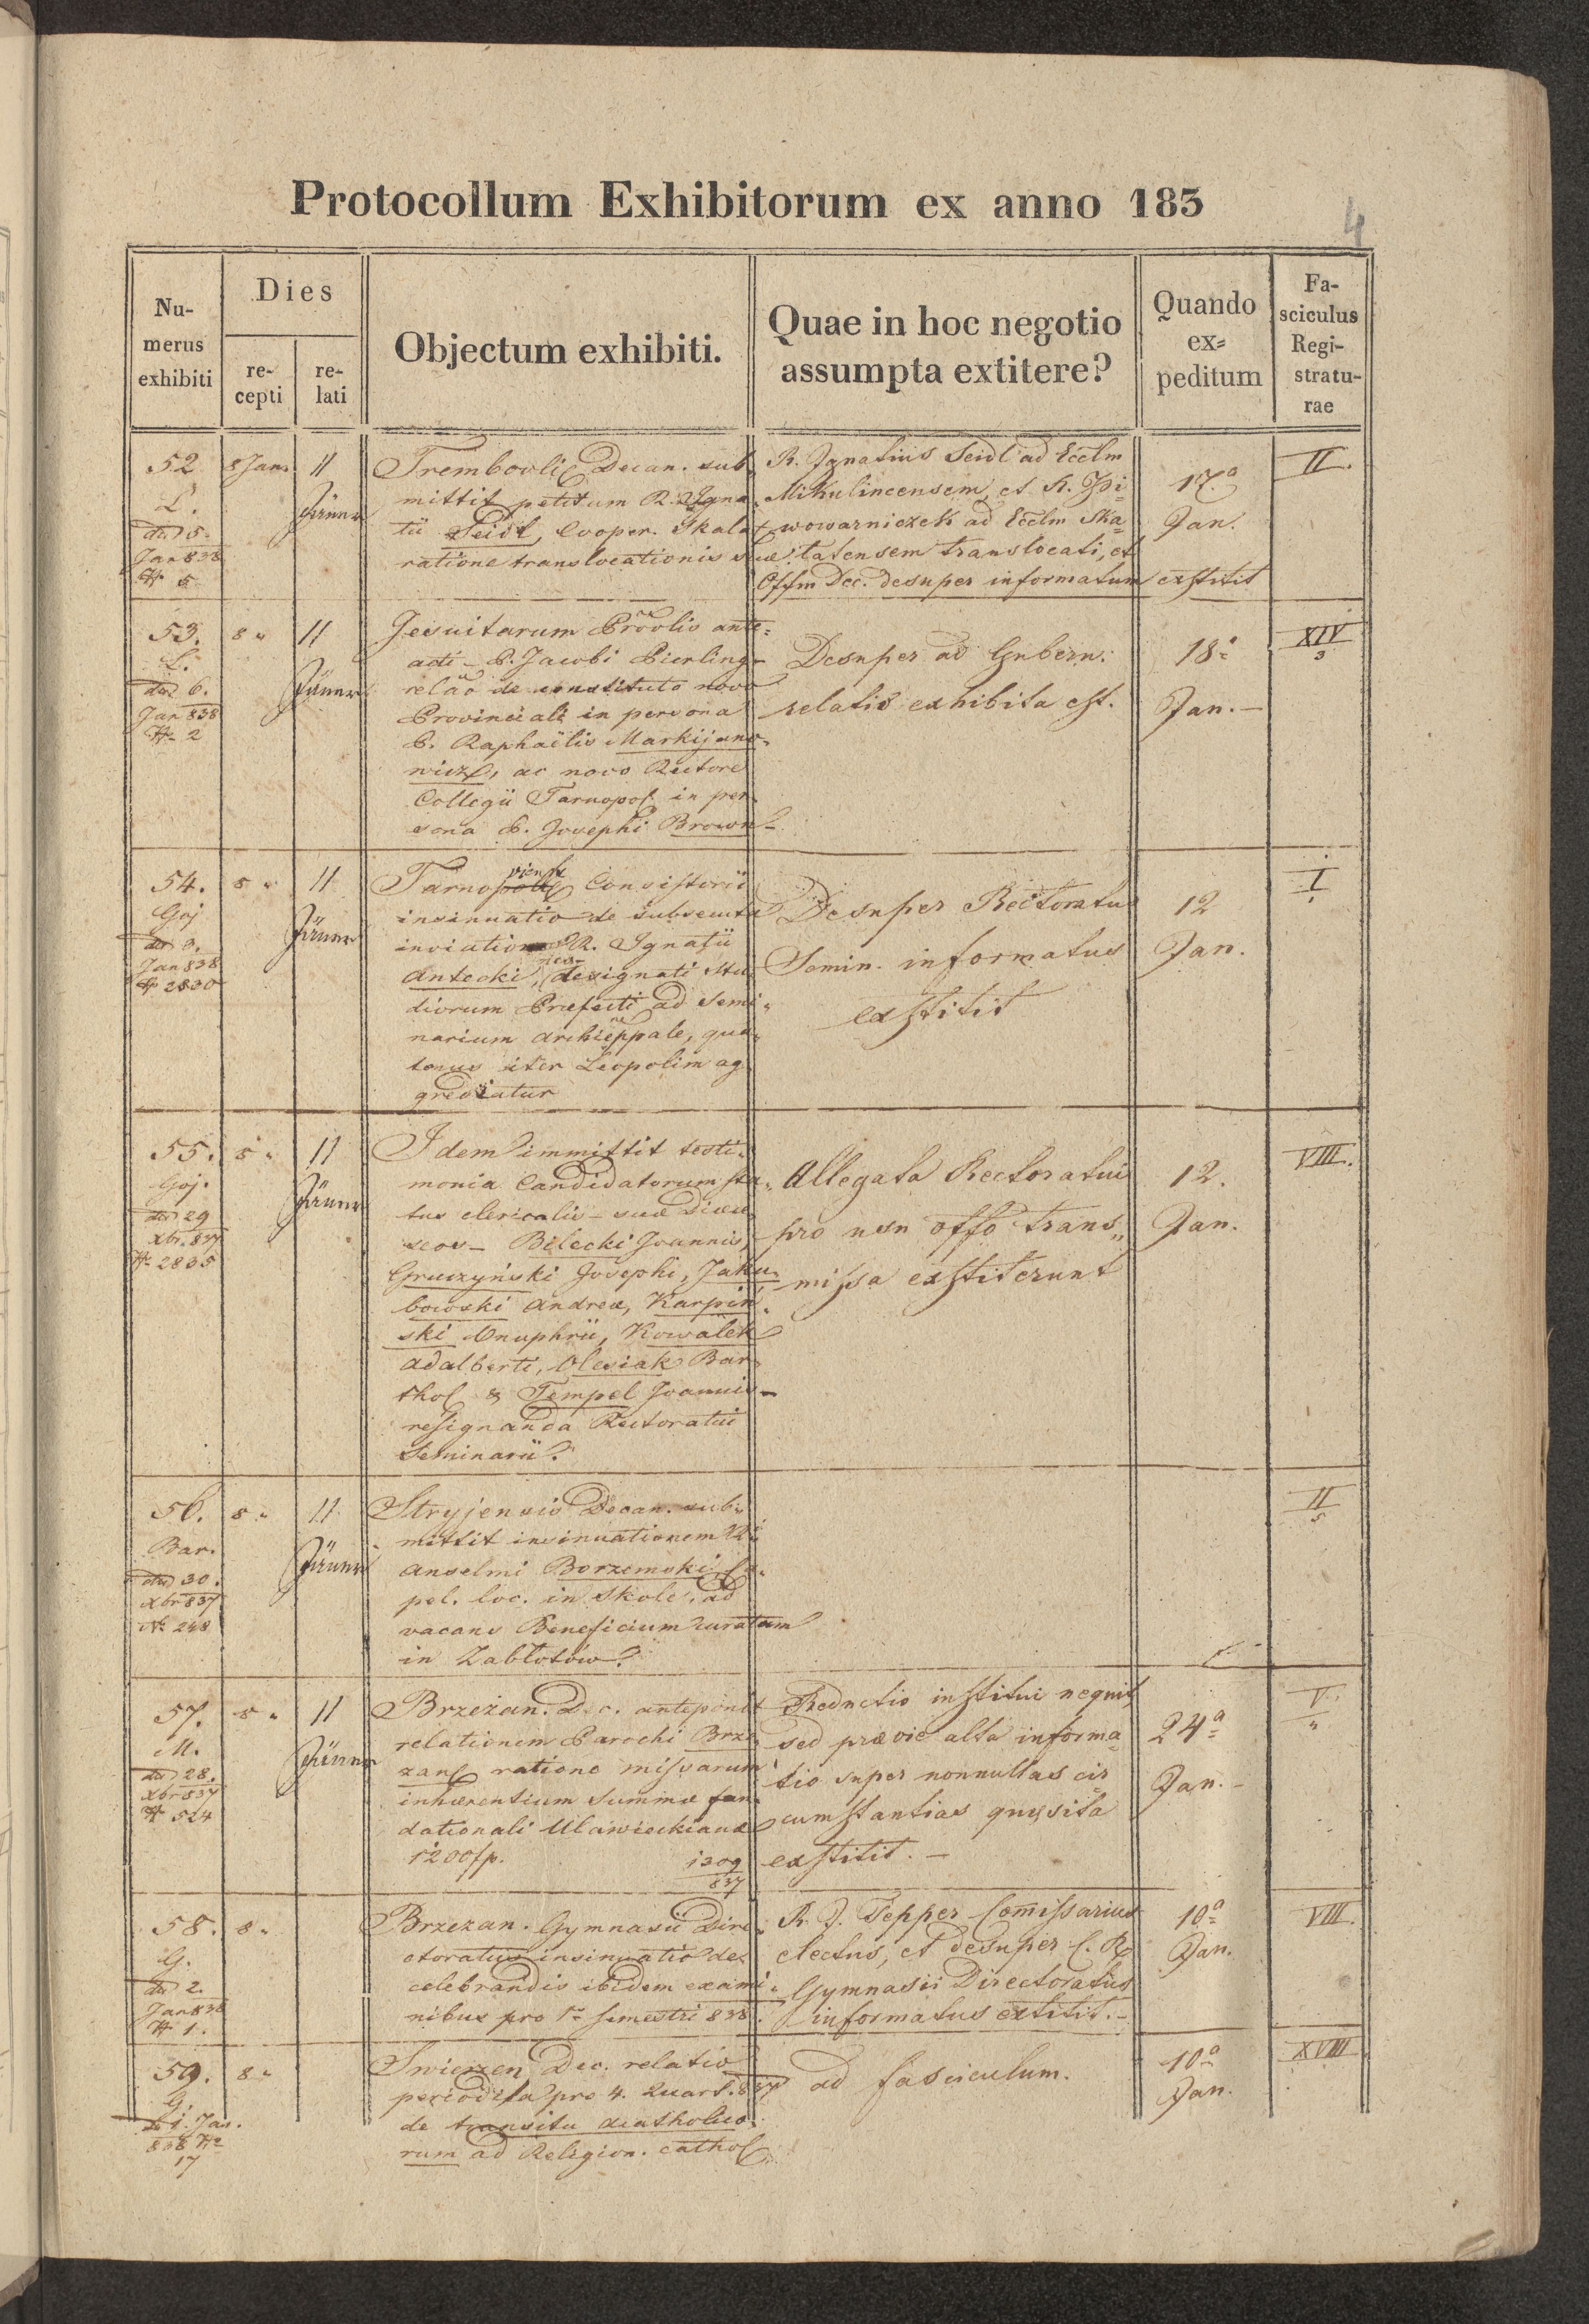 Protocollum Exhibitorum ex anno 183
4
Nu-
merus
exhibiti
Dies
re-
cepti
re-
lati
Objectum exhibiti.
Quae in hoc negotio
assumpta extitere?
Quando
ex-
peditum
Fa-
sciculus
Regi-
stratu-
rae
52
L.
dto 5.
Jan 838
N 5
8 Jan.
11
Jänner
Trembovl. Decan. sub-
mittit petitum R. Igna-
tii Seidl, Cooper. Skalat
ratione translocationis suæ.
R. Ignatius Seidl ad Eccłm
Mikulincensem, et R. Spi-
wowarniczek ad Eccłm Ska-
latensem translocati, et
Offm Dec. desuper informatum exstitit
17.a
Jan.
II.
53.
L.
dto 6.
Jan 838
N. 2
8 "
11
Jänner
Jesuitarum Proolis ante-
acti P. Jacobi Pierling
relão de constituto novo
Provinciali in persona
P. Raphaëlis Markijano-
wicz, ac novo Rectore
Collegii Tarnopol. in per-
sona P. Josephi Brown
Desuper ad Gubern.
relatio exhibita est.
18.a
Jan.-
XIV
3
54.
Goj
dto 3.
Jan 838
N 2830
8 "
11
Jänner
Tarnoviens. Consistorii
insinuatio de subsecuta
inviatione R. Ignatii
Antecki, neo-designati Stu-
diorum Præfecti ad Semi-
narium Archieppale, qua-
tenus iter Leopolim ag-
grediatur
Desuper Rectoratus
Semin. informatus
exstitit
12
Jan.
I
55.
Goj.
dto 29
Xbr. 837
N. 2835
8 "
11
Jänner
Idem immittit testi-
monia Candidatorum sta-
tus clericalis suæ Dioe-
ceos - Bilecki Joannis,
Gruczyński Josephi, Jaku-
bowski Andreæ, Karpiń-
ski Onuphrii, Kowalek
Adalberti, Olesiak Bar-
thol & Tempel Joannis -
resignanda Rectoratui
Seminarii.
Allegata Rectoratui
pro usu offo trans-
missa exstiterunt
12.
Jan.
VIII.
56.
Bar.
dto 30.
Xbr 837
N. 248
8 "
11
Jänner
Stryjensis Decan. sub-
mittit insinuationem R.
Anselmi Borzemski, Ca-
pel. loc. in Skole, ad
vacans Beneficium curatum
in Zabłotów.
II
5
57.
M.
dto 28.
Xbr 837
N 524
8 "
11
Jänner
Brzeżan. Dec. anteponit
relationem Parochi Brze-
zan. ratione missarum
inhærentium Summæ fun-
dationali Ulawieckianæ
1200 fp. 1309
837
Reductio institui nequit
sed prævie alta informa-
tio super nonnullas cir-
cumstantias quæsita
exstitit. -
24a
Jan. -
V.
"
58.
G.
dto 2.
Jan 838
N 1.
8 "
Brzezan. Gymnasii Dire-
ctoratus insinuatio de
celebrandis ibidem exami-
nibus pro 1o semestri 838.
R. J. Tepper Comissarius
electus, et desuper C. R.
Gymnasii Directoratus
informatus extitit.-
10a
Jan.
VIII.
59.
G.
dto 1. Jan.
838 No
17
8 "
Swierzen Dec. relatio
periodica pro 4. Quart. 837
de transitu acatholico-
rum ad Religion. cathol.
ad fasciculum.
10a
Jan.
XVIII